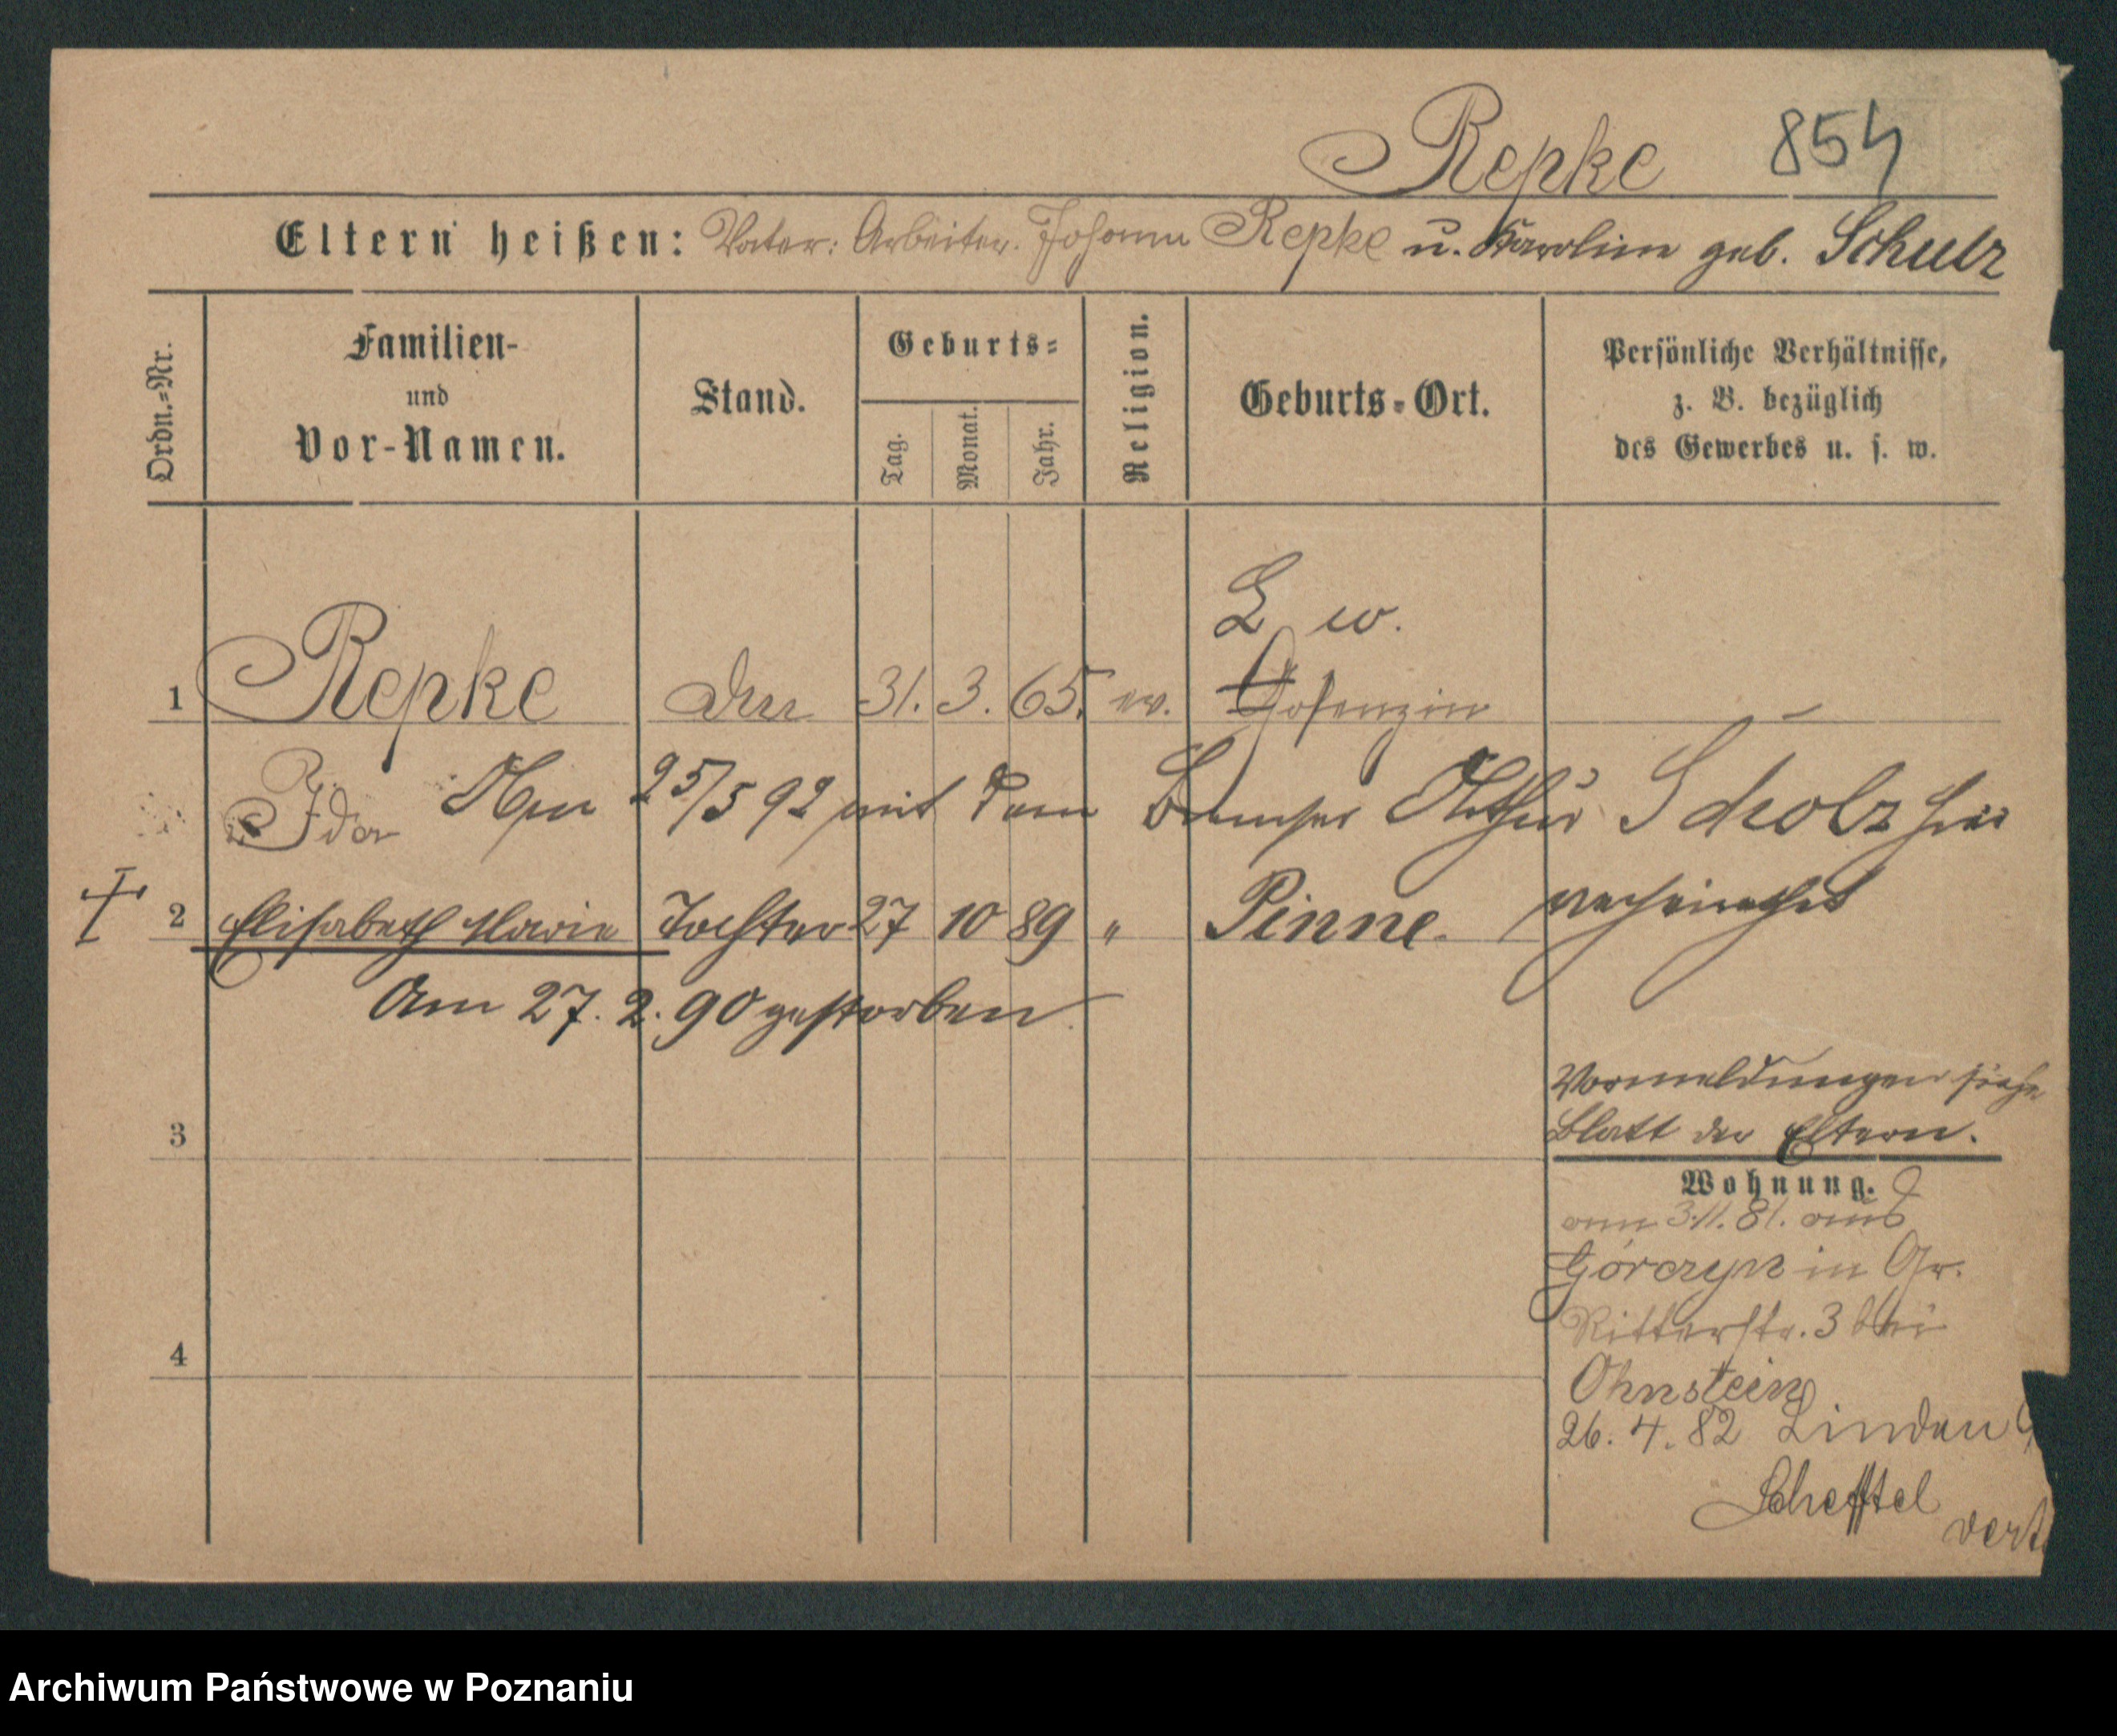 Repke 854
Eltern heißen: Vater: Arbeiter. Johann Repke u. Karoline geb. Schulz
Ordn.-Nr.
Familien-
und
Vor-Namen.
Stand.
Geburts-
Tag.
Monat.
Jahr.
Religion.
Geburts-Ort.
Persönliche Verhältnisse,
z. B. bezüglich
des Gewerbes u. s. w.
L w.
1 Repke 31. 3. 65. ev.
Ida 25/5 92 mit dem Arthur Scholz hier
verheirathet
2 Elisabeth Marie Tochter 27 10 89 " Pinne.
Am 27. 2. 90 gestorben.
Vormeldungen siehe
Blatt der Eltern.
3
Wohnung.
am 3.11.81. aus
Górczyn in Gr.
Ritterstr. 3 bei
Ohnstein
4
26. 4. 82 Linden
Scheffel
Archiwum Państwowe w Poznaniu